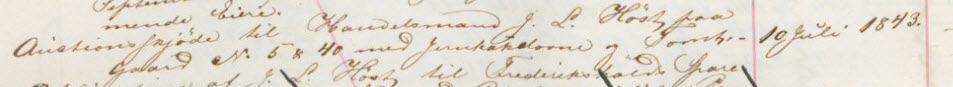 mende Eiere.
Auctionsskjøde til Handelsmand J. L. Høst paa
Gaard No. 5 & 40 med Jernkakelovne og Tomt. - 10 Juli 1843.
af J. L. Høst til Frederikshalds Spare